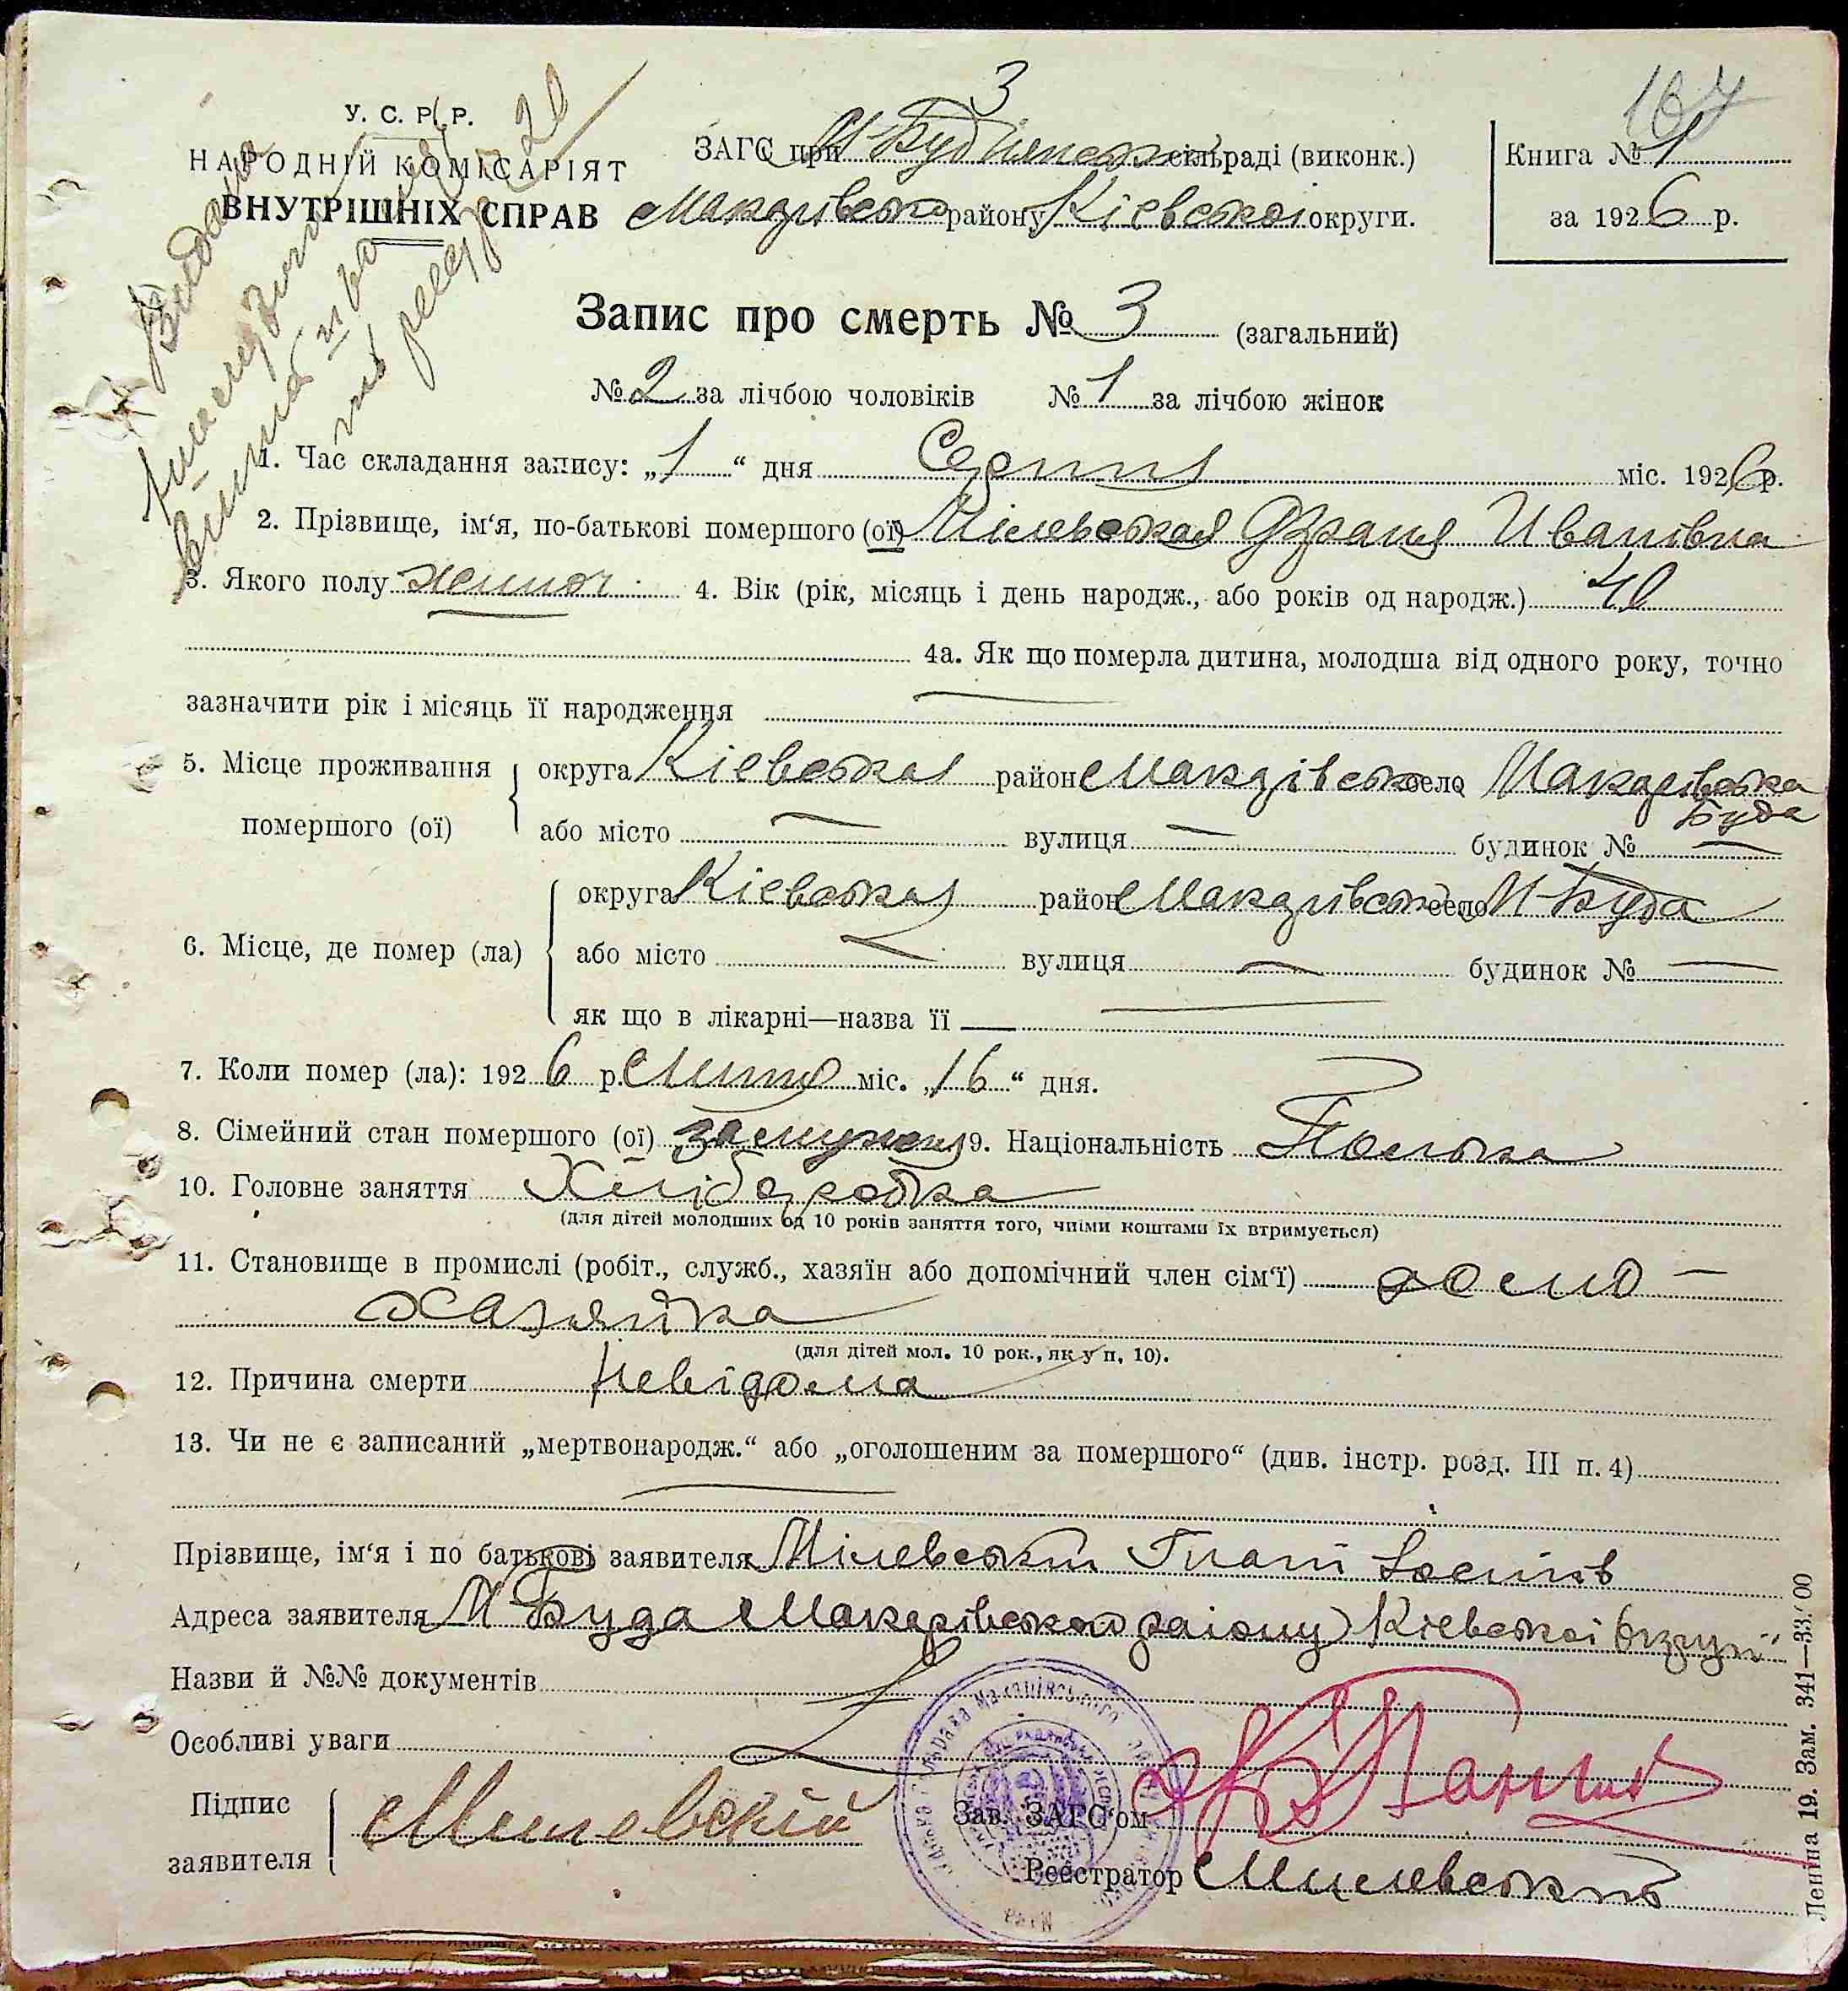 3
167
У. С. Р. Р.
НАРОДНІЙ КОМІСАРІЯТ
ВНУТРІШНІХ СПРАВ
ЗАГС при М-Будянськ сільраді (виконк.)
Макарівськ району Кіевської округи.
Книга № 1
за 1926 р.
Видана
20
Запис про смерть № 3 (загальний)
№ 2 за лічбою чоловіків № 1 за лічбою жінок
1. Час складання запису: „1“ дня Серпня міс. 1926 р.
2. Прізвище, ім‘я, по-батькові помершого (ої) Мілевская Франя Иванівна
3. Якого полу жиноч 4. Вік (рік, місяць і день народж., або років од народж.) 40
4а. Як що померла дитина, молодша від одного року, точно
зазначити рік і місяць її народження —
5. Місце проживання помершого (ої) округа Кіевська район Макарівськ село Макарівська Буда
або місто — вулиця — будинок № —
6. Місце, де помер (ла) округа Кіевська район Макарівськ село М-Буда
або місто — вулиця — будинок № —
як що в лікарні—назва її —
7. Коли помер (ла): 1926 р. міс. „16“ дня.
8. Сімейний стан помершого (ої) замужня 9. Національність Полька
10. Головне заняття Хліборобка
(для дітей молодших од 10 років заняття того, чиїми коштами їх втримується)
11. Становище в промислі (робіт., служб., хазяїн або допомічний член сім‘ї) домо-
хазяйка
(для дітей мол. 10 рок., як у п. 10).
12. Причина смерти Невідома
13. Чи не є записаний „мертвонародж.“ або „оголошеним за помершого“ (див. інстр. розд. III п. 4)
—
Прізвище, ім‘я і по батькові заявителя Мілевський Гнат
Адреса заявителя М Буда Макарівського району Кіевскої округи
Назви й №№ документів
Особливі уваги
Підпис заявителя Милевский
Зав. ЗАГС‘ом
Реєстратор Милевський
Леніна 19. Зам. 341—33.00